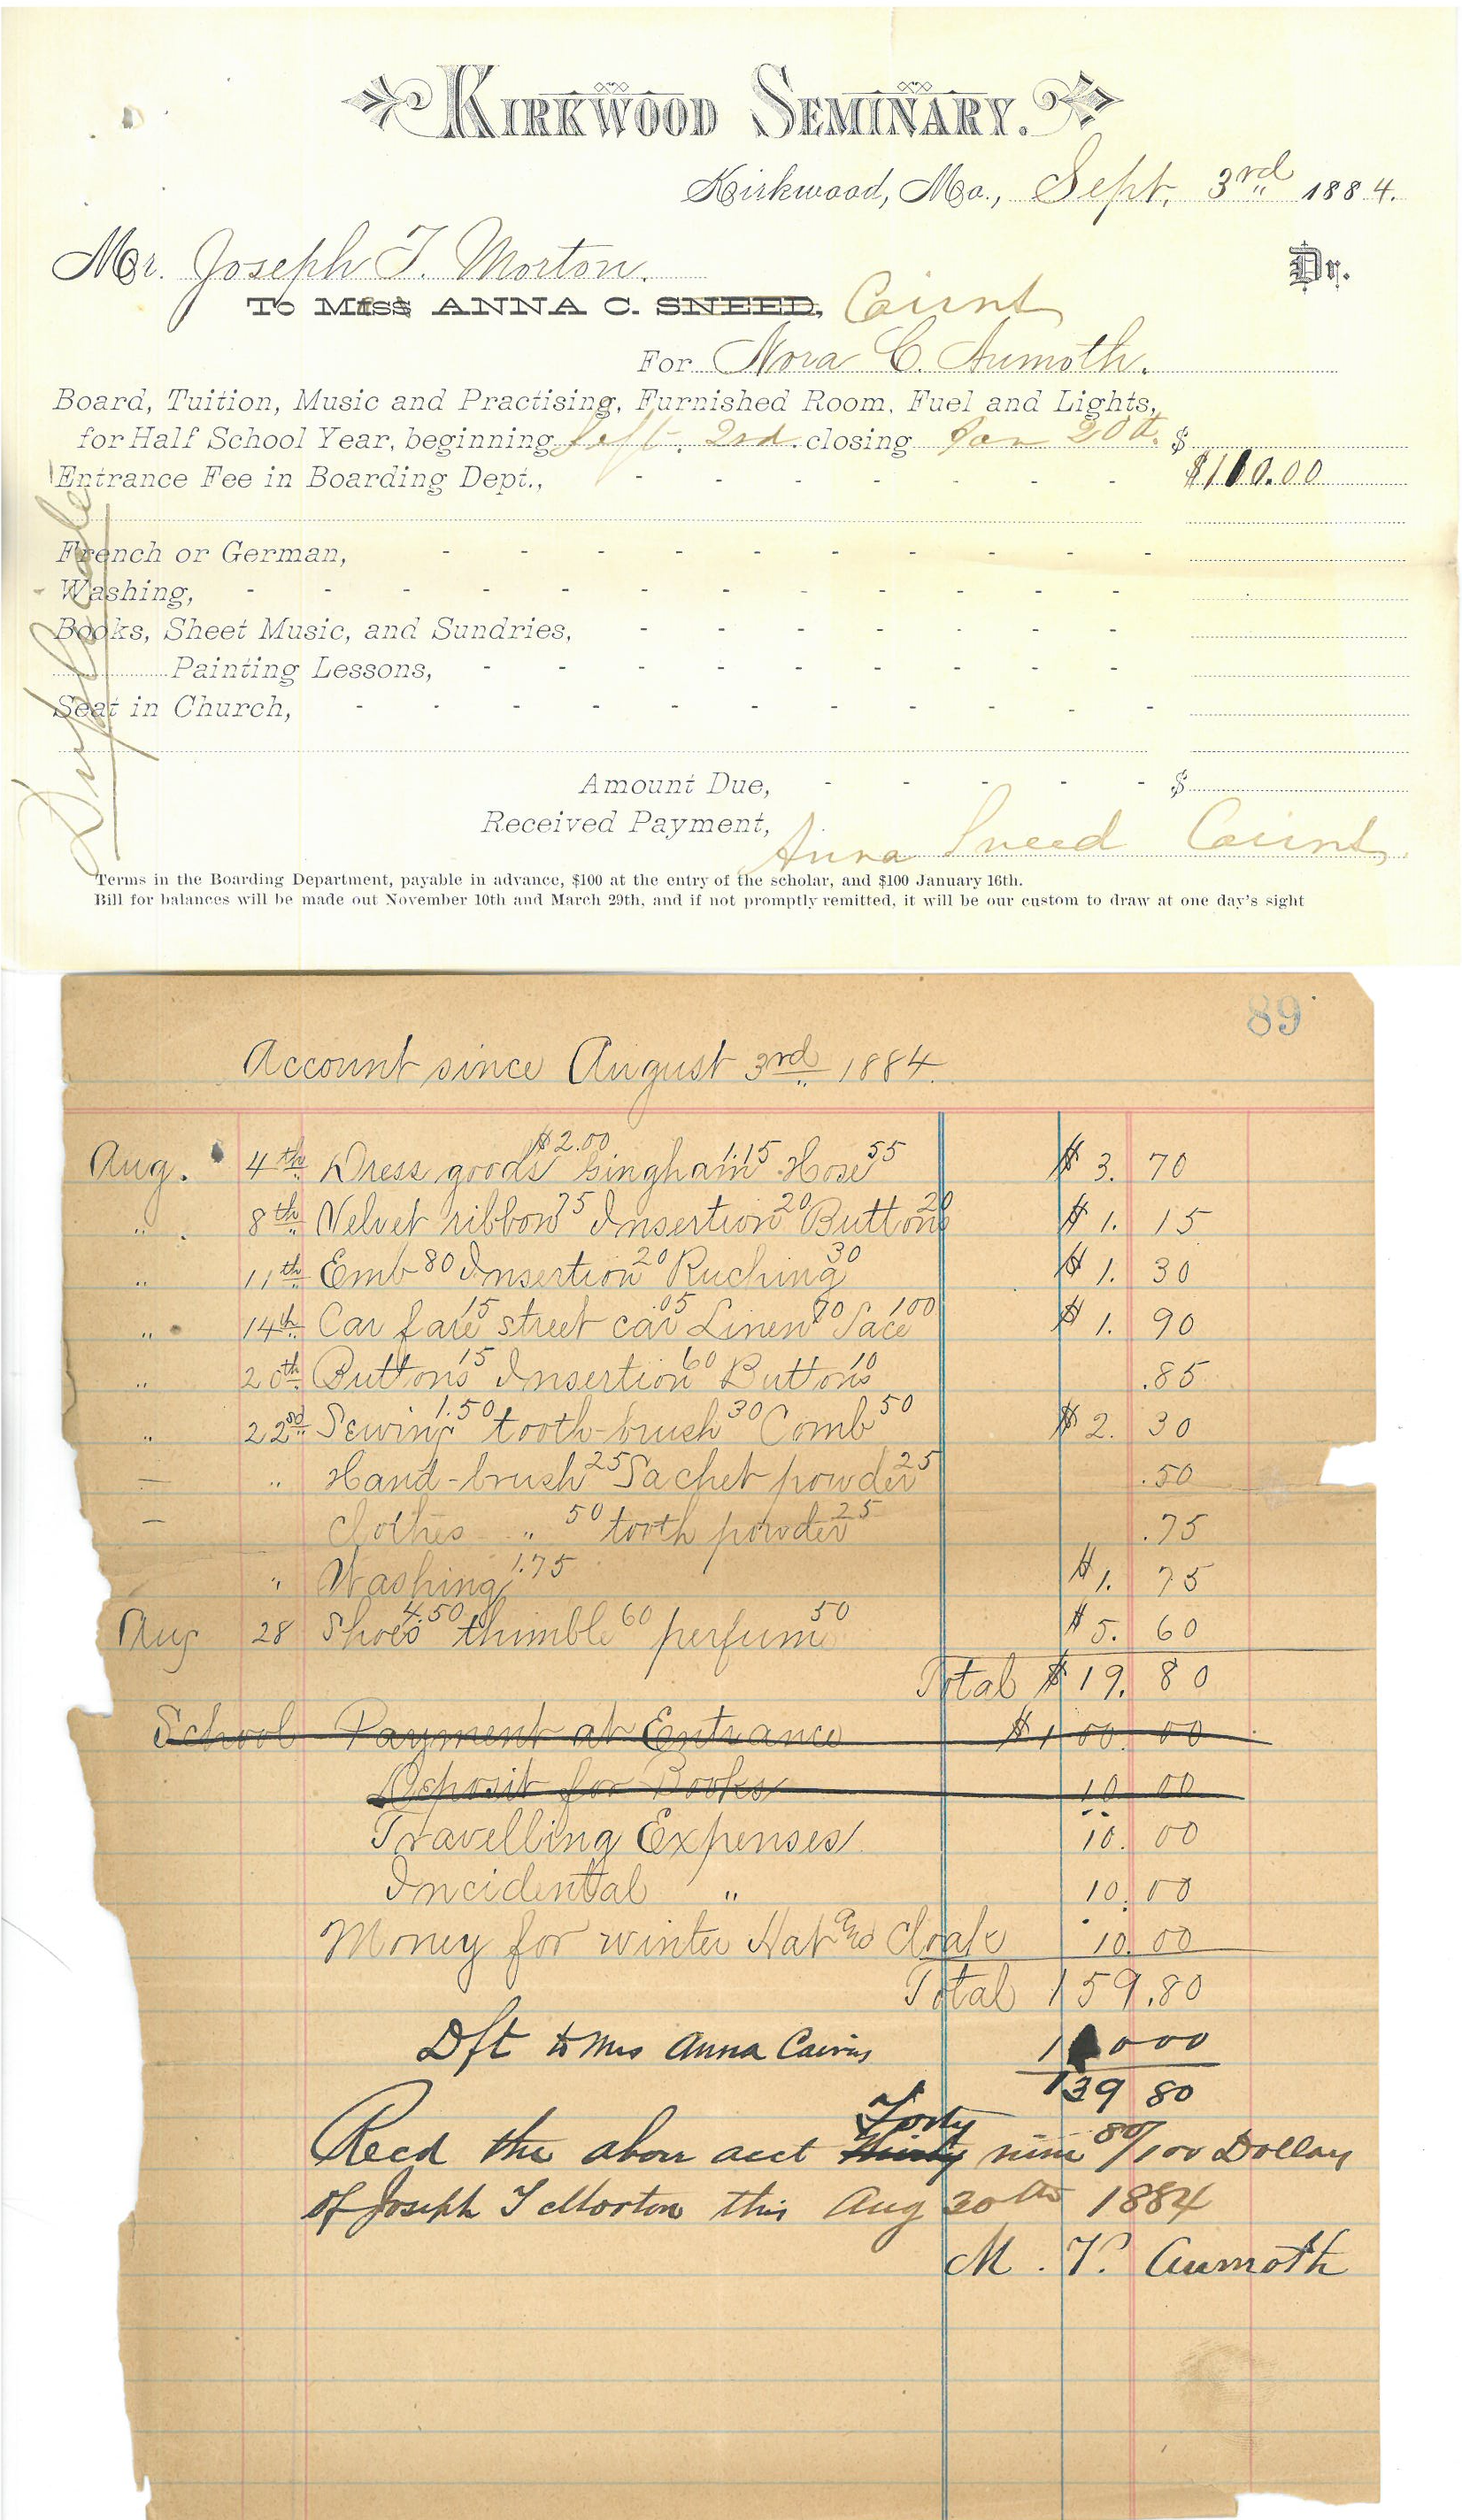 KIRKWOOD SEMINARY.
Kirkwood, Mo., Sept. 3rd 1884.
Mr. Joseph T. Morton. Dr.
To Mrs ANNA C. SNEED, Cairns
For Nora C. Aumoth.
Board, Tuition, Music and Practising, Furnished Room, Fuel and Lights,
for Half School Year, beginning Sept. 2nd. closing Jan 20th. $
Entrance Fee in Boarding Dept., - - - - - - - $110.00
French or German, - - - - - - - - - -
Washing, - - - - - - - - - - - -
Books, Sheet Music, and Sundries, - - - - - - -
Painting Lessons, - - - - - - - - -
Seat in Church, - - - - - - - - - - -
Duplicate
Amount Due, - - - - - $
Received Payment, Anna Sneed Cairns
Terms in the Boarding Department, payable in advance, $100 at the entry of the scholar, and $100 January 16th.
Bill for balances will be made out November 10th and March 29th, and if not promptly remitted, it will be our custom to draw at one day's sight
89
Account since August 3rd 1884.
Aug. 4th Dress goods $2.00 Gingham 1.15 Hose 55 $ 3. 70
" 8th Velvet ribbon 75 Insertion 20 Buttons 20 $ 1. 15
" 11th Emb 80 Insertion 20 Ruching 30 $ 1. 30
" 14th Car fare 15 street car .05 Linen 70 Lace 100 $ 1. 90
" 20th Buttons 15 Insertion 60 Buttons 10 .85
" 22nd Sewing 1.50 tooth-brush 30 Comb 50 $ 2. 30
— " Hand-brush 25 Sachet powder 25 .50
— Clothes " 50 tooth powder 25 .75
" Washing 1.75 $ 1. 75
Aug 28 Shoes 4.50 thimble 60 perfume 50 $ 5. 60
Total $ 19. 80
School Payment at Entrance $ 100 00
Deposit for Books 10 00
Travelling Expenses 10. 00
Incidental " 10. 00
Money for winter Hat and Cloak 10. 00
Total 159.80
Dft to Mrs Anna Cairns 11000
139 80
Recd the above acct Thirty Forty nine 80/100 Dollars
of Joseph T Morton this Aug 30th 1884
M. V. Aumoth